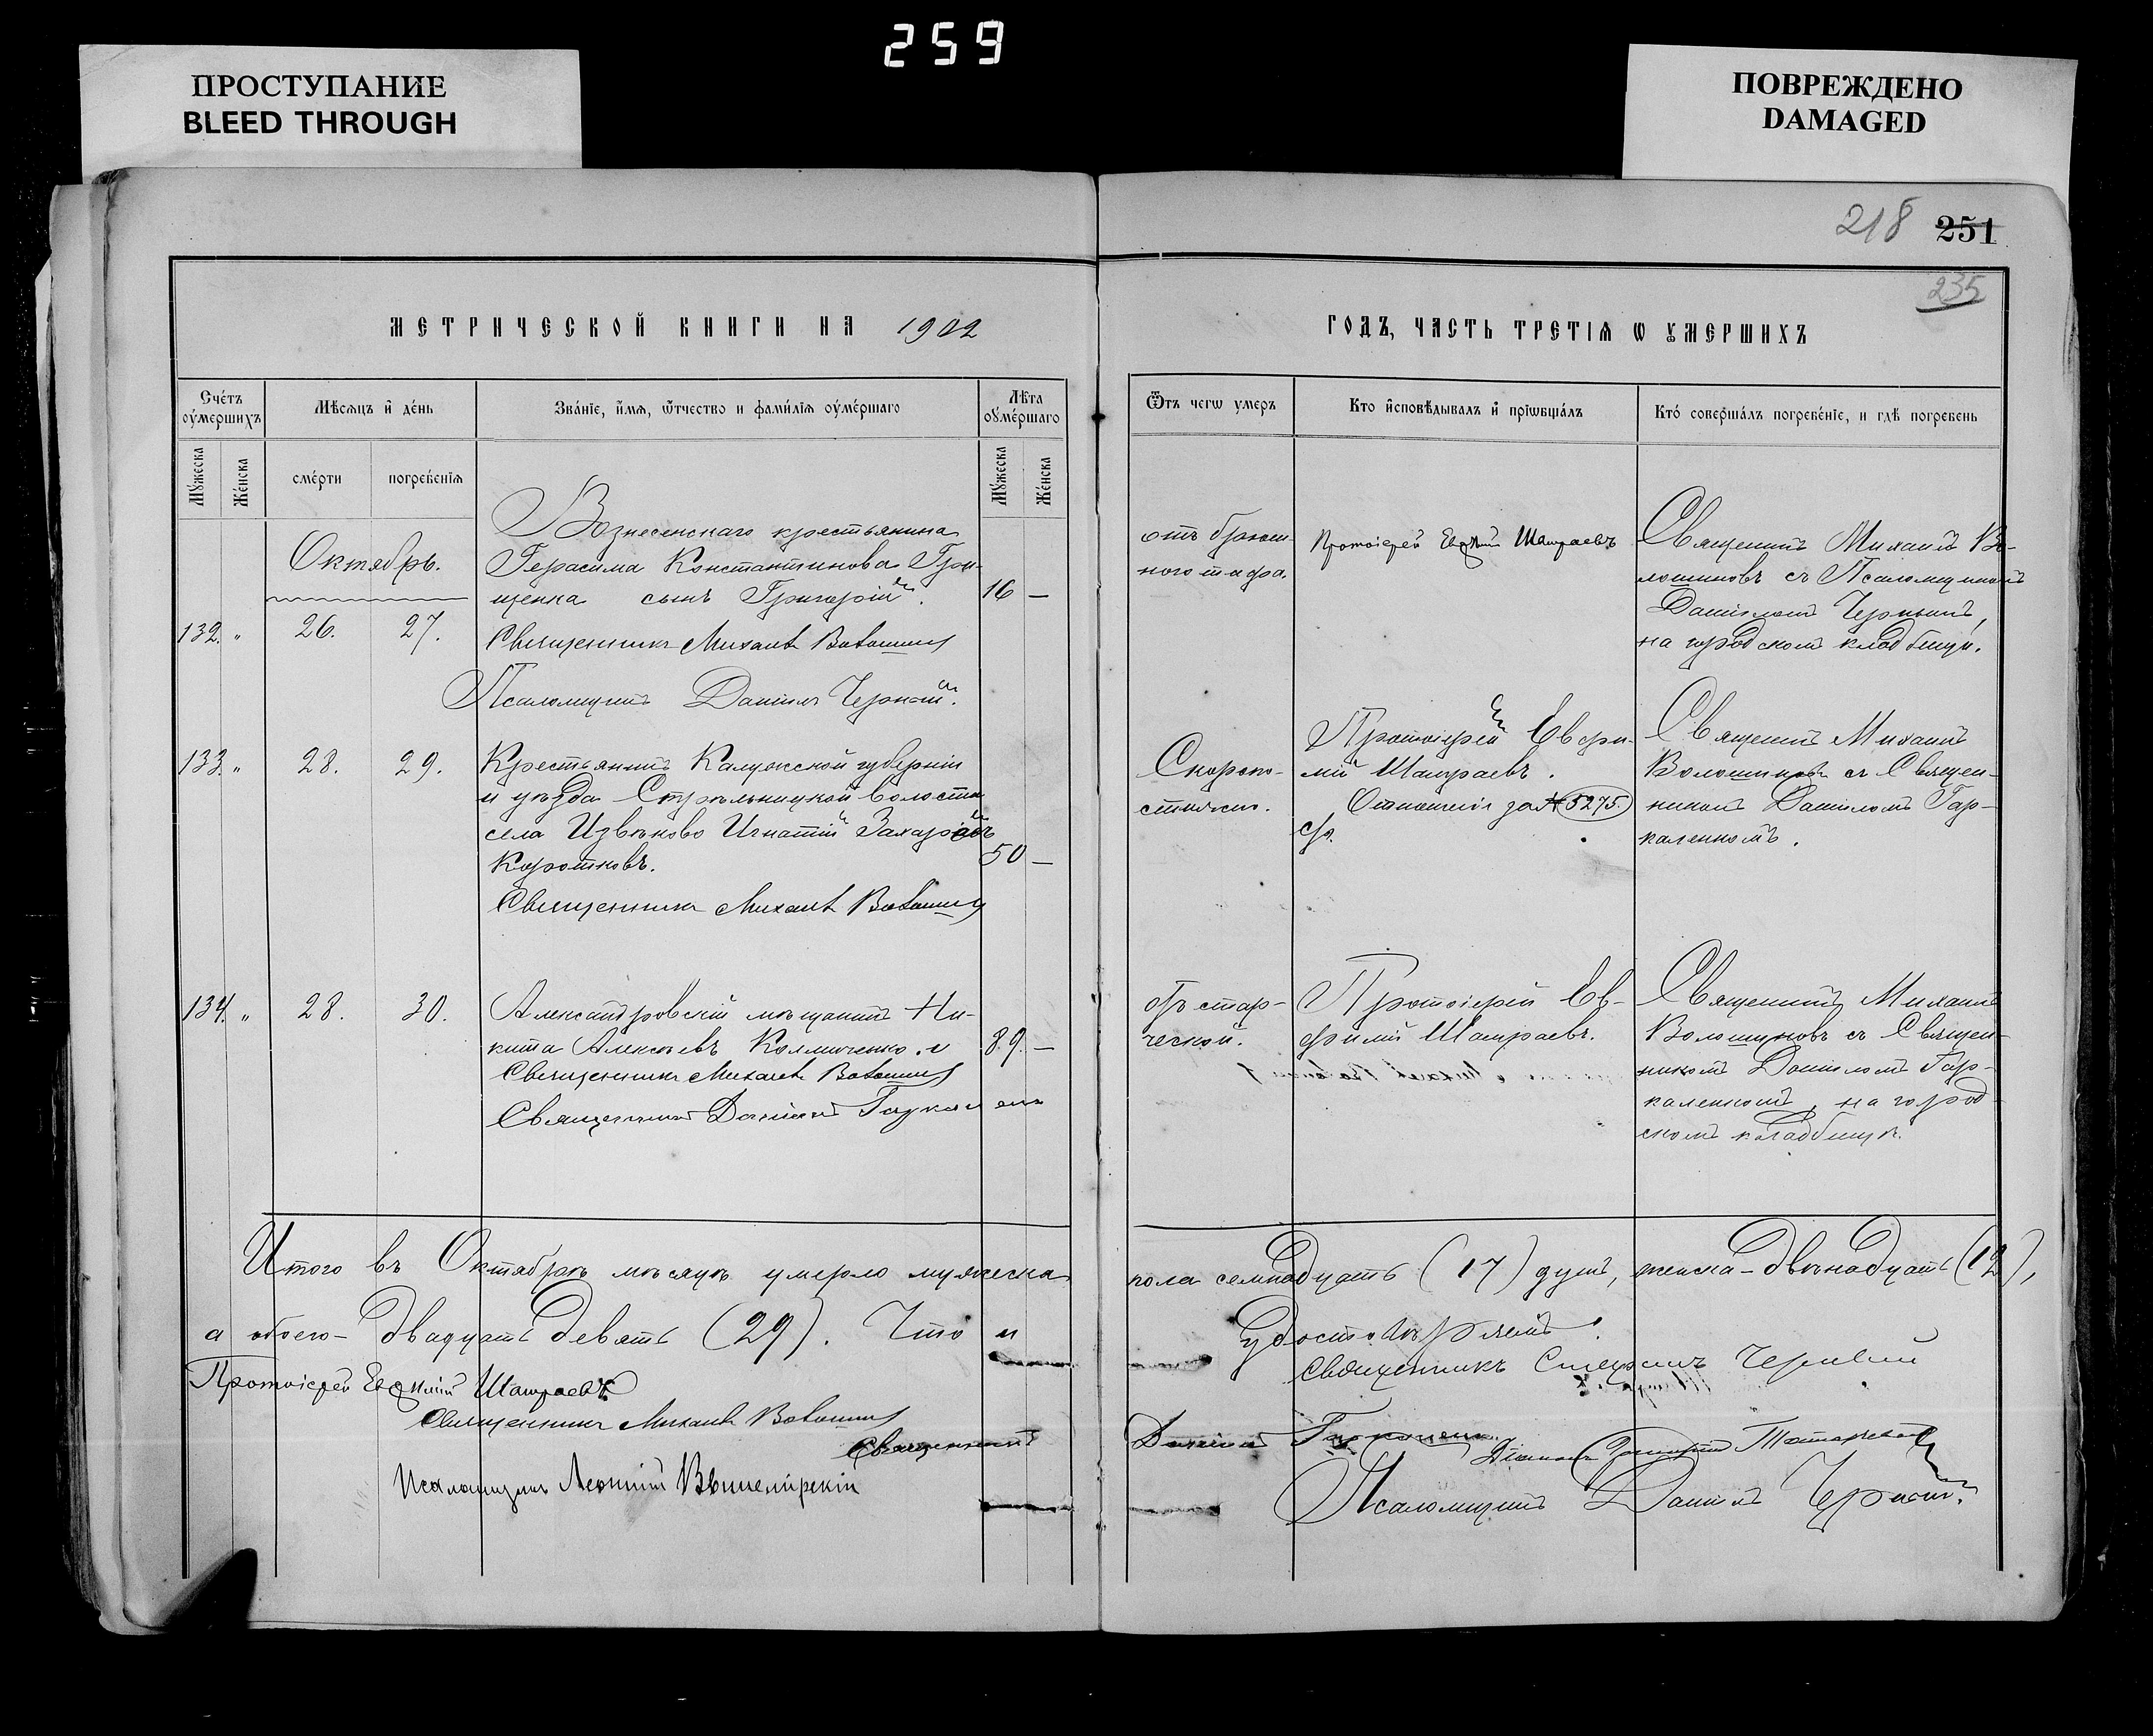 259
ПРОСТУПАНИЕ
BLEED THROUGH
ПОВРЕЖДЕНО
DAMAGED
218 251
235
МЕТРИЧЕСКОЙ КНИГИ НА 1902
ГОДЪ, ЧАСТЬ ТРЕТІѦ Ѡ ѸМЕРШИХЪ
Сче́тъ оу҆ме́ршихъ
Мѣ́сѧцъ и҆ де́нь
Зва́нїе, и҆́мѧ, ѻ҆́тчество и фами́лїѧ оу҆ме́ршаго
Лѣ́та оу҆ме́ршаго
Ѿ чегѡ̀ умеръ
Кто и҆сповѣ́дывалъ и҆ прїѡбща́лъ
Кто̀ соверша́лъ погребе́нїе, и гдѣ̀ погребенъ
Му́жеска
Же́нска
сме́рти
погребе́нїѧ
Му́жеска
Же́нска
Октябрь.
132. " 26. 27.
Вознесенскаго крестьянина
Герасима Константинова Грищенка
сынъ Григорій.
16 —
Священникъ Михаилъ Волошинъ
Псаломщикъ Даніилъ Черный.
отъ брюш-
ного тифа.
Протоіерей Евѳимій Шатраевъ
Священникъ Михаилъ Во-
лошиновъ съ Псаломщикомъ
Даніиломъ Чернымъ,
на городскомъ кладбищѣ.
133. " 28. 29.
Крестьянинъ Калужской губерніи
и уѣзда Стрѣльницкой волости
села Извѣково Игнатій Захаріевъ
Коротковъ.
50 —
Священникъ Михаилъ Волошинъ
Скоропо-
стижно.
Протоіерей Евфи-
мій Шатраевъ.
Отношеніе за № 5275.
Священникъ Михаилъ
Волошиновъ съ Священ-
никомъ Даніиломъ Гар-
каленкомъ.
134. " 28. 30.
Александровскій мѣщанинъ Ни-
кита Алексѣевъ Колмиченко.
89. —
Священникъ Михаилъ Волошинъ
Священникъ Даніилъ Гаркаленко
отъ стар-
ческой.
Протоіерей Ев-
фимій Шатраевъ.
Священникъ Михаилъ
Волошиновъ съ Священ-
никомъ Даніиломъ Гар-
каленкомъ, на город-
скомъ кладбищѣ.
Итого въ Октябрѣ мѣсяцѣ умерло мужеска пола семнадцать (17) душъ, женска – двѣнадцать (12),
а обоего – двадцать девять (29). Что и удостовѣряемъ.
Протоіерей Евѳимій Шатраевъ
Священникъ Стефанъ Черный
Священникъ Михаилъ Волошинъ
Священникъ Даніилъ Гаркаленко
Діаконъ Григорій
Псаломщикъ Леонтій Вышемірскій
Псаломщикъ Даніилъ Черный.